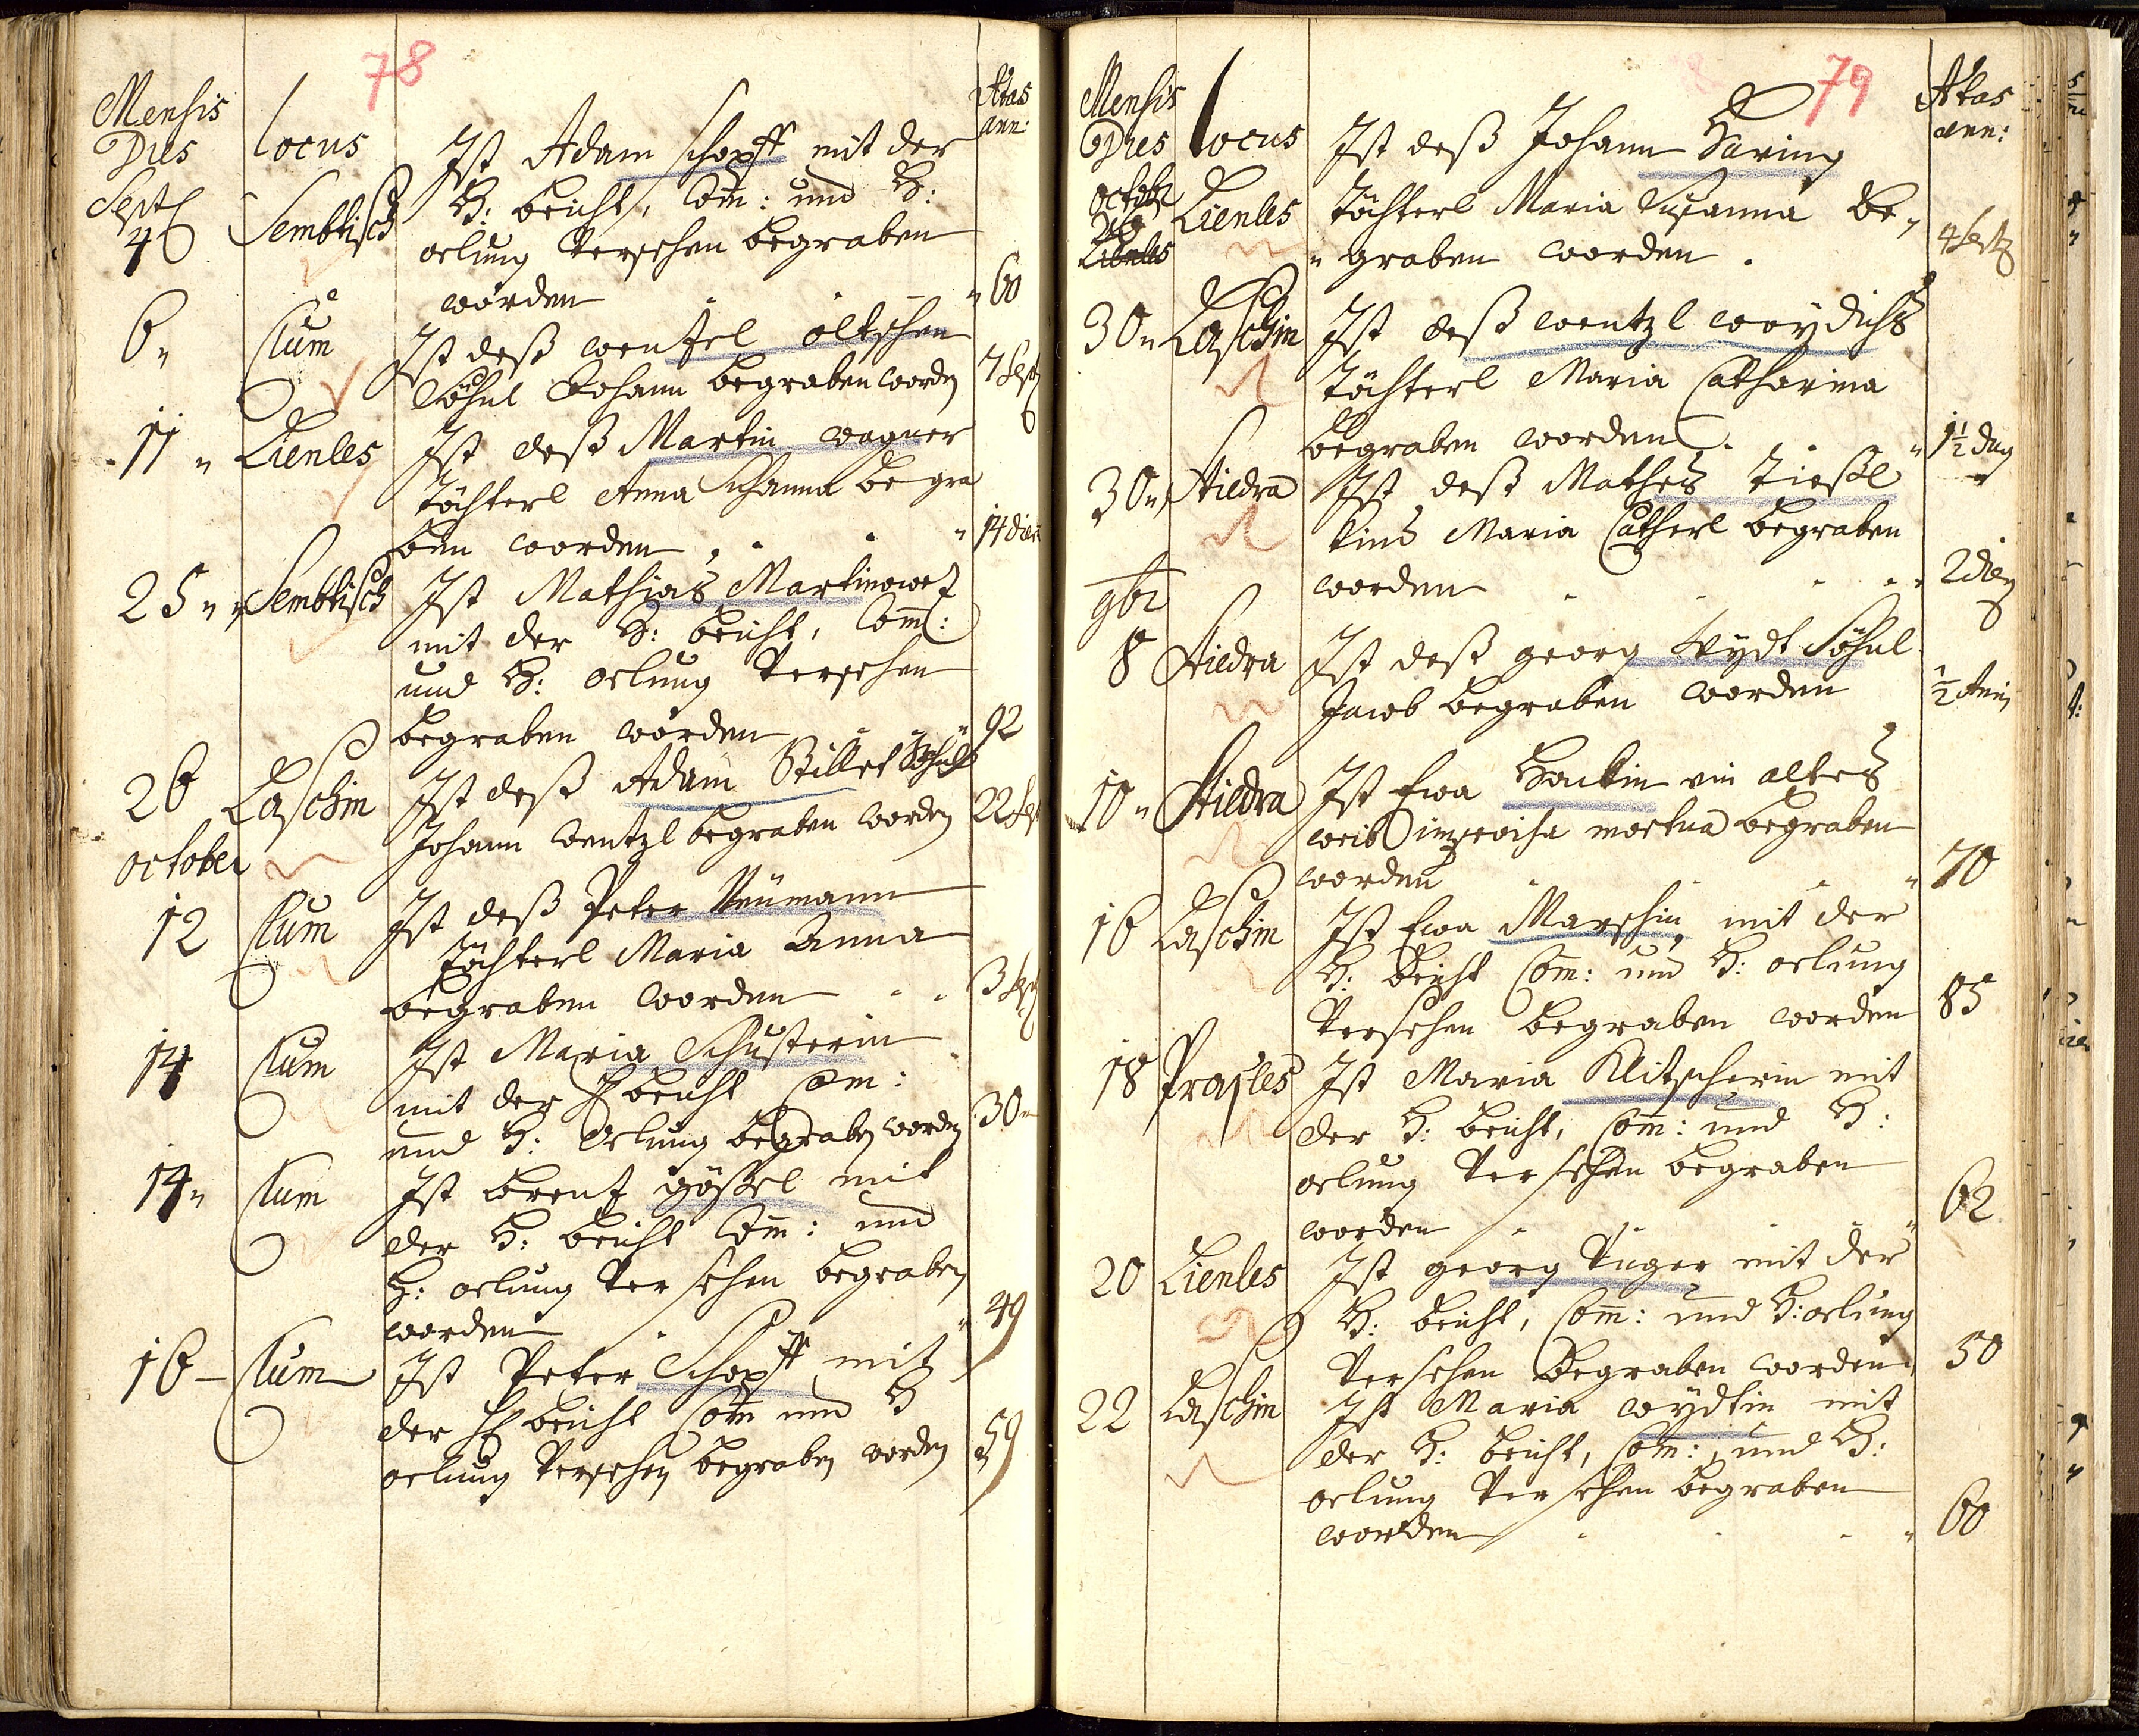 78
Mensis
Dies
locus
Ætas
ann:
Sept
4
Sembtisch
Ist Adam Schopff mit der
H: beicht, Com̄: und H:
oelung Versehen begraben
worden " 60
6 "
Clum
Ist deß Wentzel
Söhnl Johann begraben worden
7 Sept
11 "
Lienles
Ist deß Martin Wagner
Töchterl Anna begra
ben worden
14 dies
25 "
Sembtisch
Ist Mathias Martinowetz
mit der H: beicht, Com̄:
und H: oelung Versehen
begraben worden
92
26
Laschin
Ist deß Adam Söhnl
Johann Wentzl begraben worden
22
October
12
Clum
Ist deß Peter Neümann
Töchterl Maria Anna
begraben worden
3 Sept
14
Clum
Ist Maria Schusterin
mit der H beicht Com:
und H: Oelung begraben worden
30
14 "
Clum
Ist gößel mit
der H: beicht Com̄: und
H: oelung Versehen begraben
worden
49
16
Clum
Ist Peter Schopff mit
der H beicht Com̄ und H
oelung Versehen begraben worden
59
79
Mensis
Dies
locus
Ætas
ann:
Octob
Lienles
Lienles
Ist deß Johann Haring
Töchterl Maria Susanna be-
graben worden.
30 "
Laschin
Ist deß Wentzl Woydichs
Töchterl Maria Catharina
begraben worden
1½ dag
30 "
Hiedra
Ist deß Matheß Tießl
Kind Maria Catherl begraben
worden
2 dies
9br
8
Hiedra
Ist deß Georg Veydt Söhnl
Jacob begraben worden
½ Anni
10 "
Hiedra
Ist Ewa Hackin ein altes
weib improvisa mortua begraben
worden
70
16
Laschin
Ist Ewa Marschin mit der
H: Beicht Com̄: und H: oelung
Versehen begraben worden
85
18
Prasles
Ist Maria Klitscherin mit
der H: beicht, Com̄: und H:
oelung Versehen begraben
worden
62
20
Lienles
Ist Georg mit der
H: beicht, Com̄: und H: oelung
Versehen begraben worden
50
22
Laschin
Ist Maria Weydtin mit
der H: beicht, Com̄: und H:
oelung Versehen begraben
worden
60